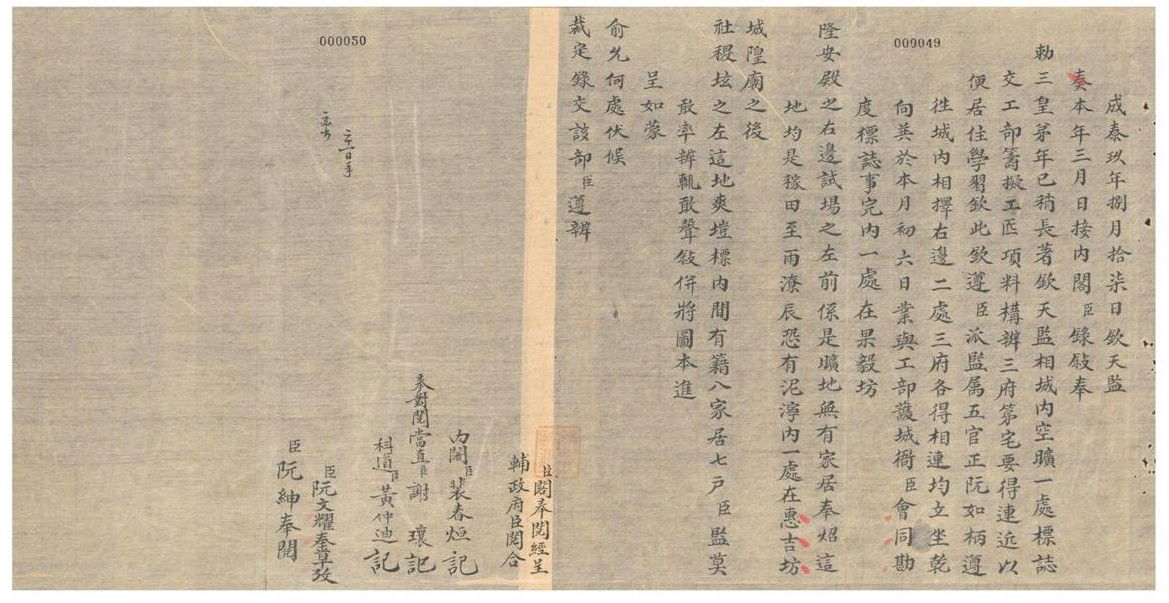 000049
成泰玖年捌月拾柒日欽天監
奏本年三月日接内閣臣錄敍奉
勅三皇弟年已稍長著欽天監相城内空曠一處標誌
交工部籌擬工匠項料構辨三府第宅要得連近以
便居住學習欽此欽遵臣派監属五官正阮如柄遵
徃城内相擇右邊二處三府各得相連均立坐乾
向巽於本月初六日業與工部護城衙臣會同勘
度標誌事完内一處在果毅坊
隆安殿之右邊試場之左前係是曠地無有家居奉炤這
地均是稼田至雨潦辰恐有泥濘内一處在惠吉坊
城隍廟之後
社稷壇之左這地爽塏標内間有籍八家居七戶臣監奠
敢率辨輒敢聲敍併將圖本進
呈如蒙
俞允何處伏候
裁定錄交該部臣遵辨
000050
臣閣奉閱經呈
輔政府臣閱合
内閣臣裴春烜記
奉對閱當直臣謝瓌記
科道臣黄仲迪記
臣阮文耀奉草攷
臣阮紳奉閱